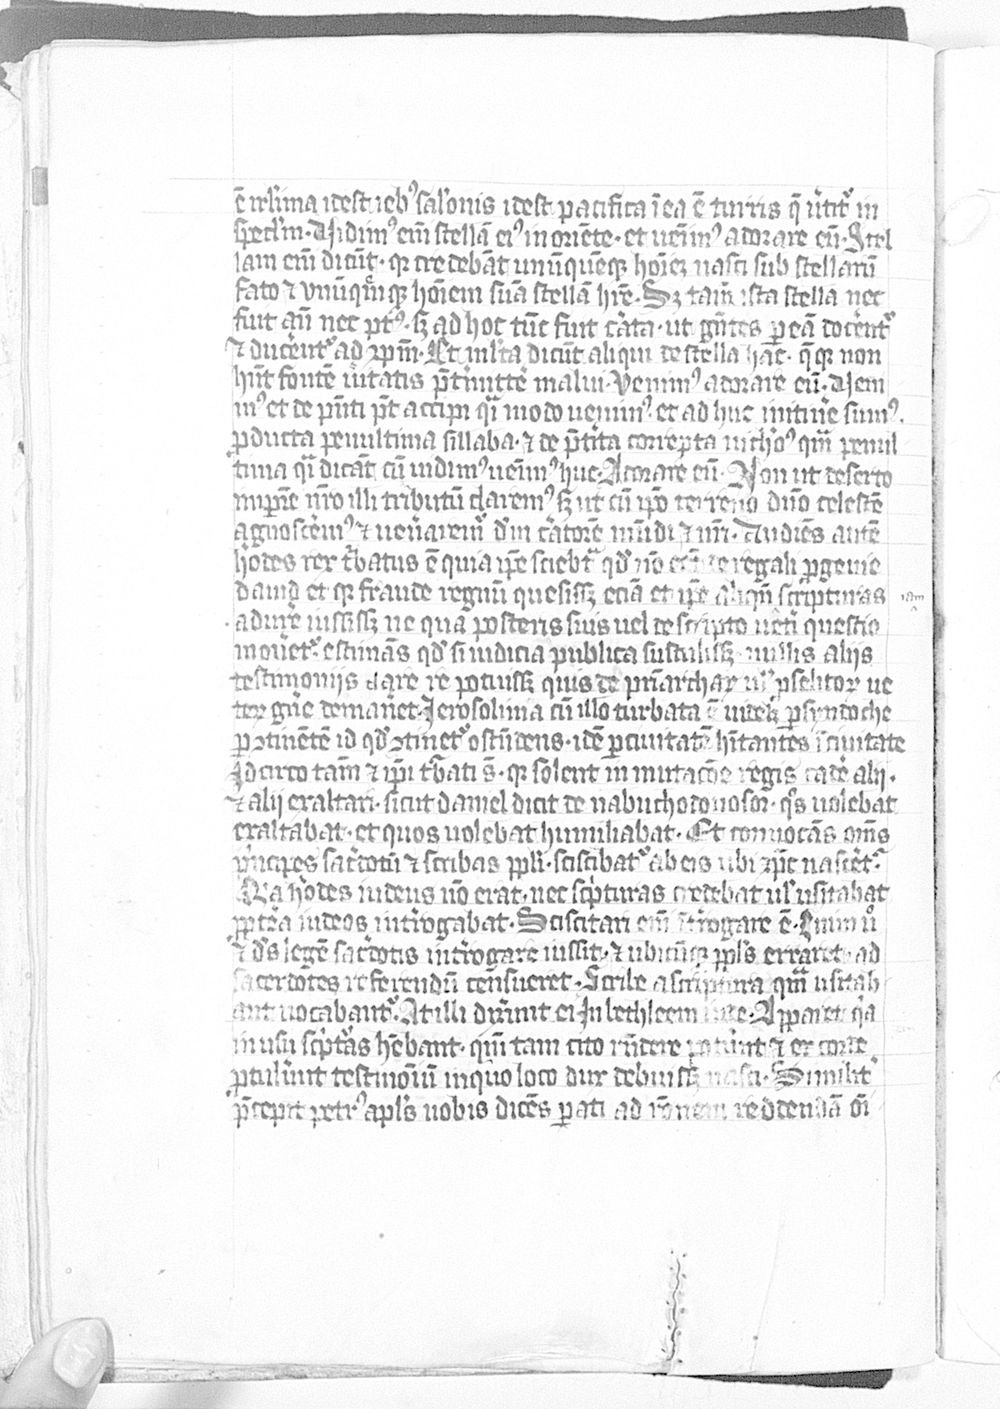 ē irl'ima idest ieb⁹ sal'onis idest pacifica ī ea ē turris q̄ uͥtitᷣ in
specl'm. Uidim⁹ em̄ stellā ei⁹ in oriēte. et uenim⁹ adorare eū. Stel
lam em̄ dicūt. qꝛ credebāt unūquēqꝫ hoīeꝫ nasci sub stellarū
fato ⁊ vnūqm̄qꝫ hoīem suā stellā hr̄e. Sꝫ tam̄ ista stella nec
fuit an̄ nec pt⁹. sꝫ ad hoc tūc fuit c̄ata. ut gn̄tes ꝑ eā docēntᷣ
⁊ ducēntᷣ ad xp̄m. Et ml'ta dicūt aliqui de stella hac. q̄ qꝛ non
hn̄t fontē ūitatis p̄t̓mittē malui. Venim⁹ adorare eū. Uem
m⁹ et de pn̄ti p̄t accipi qͣ modo uenim⁹. et ad huc in itinē sum⁹.
ꝓducta penultima sillaba. ⁊ de p̄t̓ito correpta nichō⁹ qm̄ penul
tima qͣ dicāt cū uidim⁹ uenim⁹ huc. Adorare eū. Non ut deserto
impīe nr̄o illi tributū darem⁹ sꝫ ut cū ip̄o terreno dn̄o celestē
agnoscem⁹ ⁊ ueñarem̄ dn̄m c̄atorē mūdi ⁊ nr̄i. Audiēs autē
hōdes rex t̓batus ē quia ip̄e sciebat qd̓ nō eēt de regali ꝓgenie
dauid et qꝛ fraude regnū quesissꝫ eciā et ip̄e aliqn̄ scripturas
iam
adurē iussissꝫ ne qua posteris suis uel de scripto uēti questio
mouētᷣ. estimās qd̓ si iudicia publica sustulissꝫ nullis aliis
testimoniis dare re potuissꝫ quis de priarchaꝝ ul' ꝓselitoꝝ ue
teꝝ gn̄e demanēt. Jerosolima cū illo turbata ē uidelꝫ ꝑ synodoche
ꝑ ꝯtinētē id qd̓ ꝯtinetᷣ ostn̄dens. idē ꝑ ciuitatē hītantes ī ciuitate
Idcirco tam̄ ⁊ ip̄i t̓bati sͭ. qꝛ solent in mutacōe regis cadē alij.
⁊ alij exaltari. sicut daniel dicit de nabuchodonosor. qͦs uolebat
exaltabat. et quos uolebat humiliabat. Et conuocās om̄s
pͥncipes sac̓dotū ⁊ scribas ppl'i. sciscibatᷣ ab eis ubi xp̄c nascētᷣ
Qͥa hōdes iudeus nō erat. nec scͥpturas credebat ul' usitabat
ꝓpt̓ea iudeos int̓rogabat. Sciscitari em̄ īt̓rogare ē. Enim ū
⁊ ds̄ legē sac̓dotis int̓rogare iussit. ⁊ ubicūqꝫ ppl's erraret ad
sacerdotes referendū censueret. Scribe a scriptura qm̄ usitab
ant uocabantᷣ. At illi dixerūt ei In bethleem iude. Apparet qͥa
in usu scͥpt̓as hēbant. qm̄ tam cito rn̄dere potuerūt ⁊ ex corde
ꝓtulerūt testimoīū in quo loco dux debuissꝫ nasci. Similit̓
p̄cepit petr⁹ apl's nobis dicēs parati ad rōnem reddendā oī